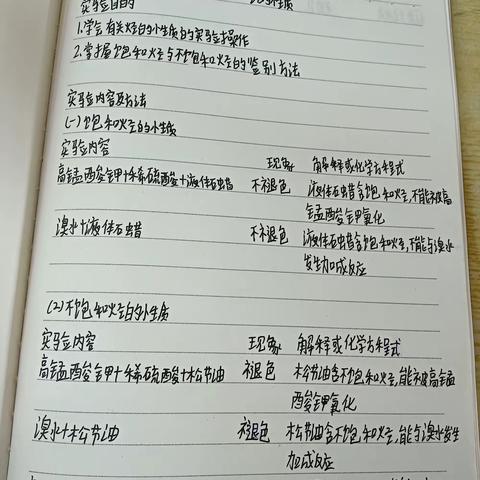 实验目的
1.学会有关烃的化性质的实验操作
2.掌握饱和烃与不饱和烃的鉴别方法
实验内容及方法
(一)饱和烃的化性质
实验内容 现象 解释或化学方程式
高锰酸钾+稀硫酸+液体石蜡 不褪色 液体石蜡含饱和烃,不能被高
锰酸钾氧化
溴水+液体石蜡 不褪色 液体石蜡含饱和烃,不能与溴水
发生加成反应
(2)不饱和烃的化性质
实验内容 现象 解释或化学方程式
高锰酸钾+稀硫酸+松节油 褪色 松节油含不饱和烃,能被高锰
酸钾氧化
溴水+松节油 褪色 松节油含不饱和烃,能与溴水发生
加成反应